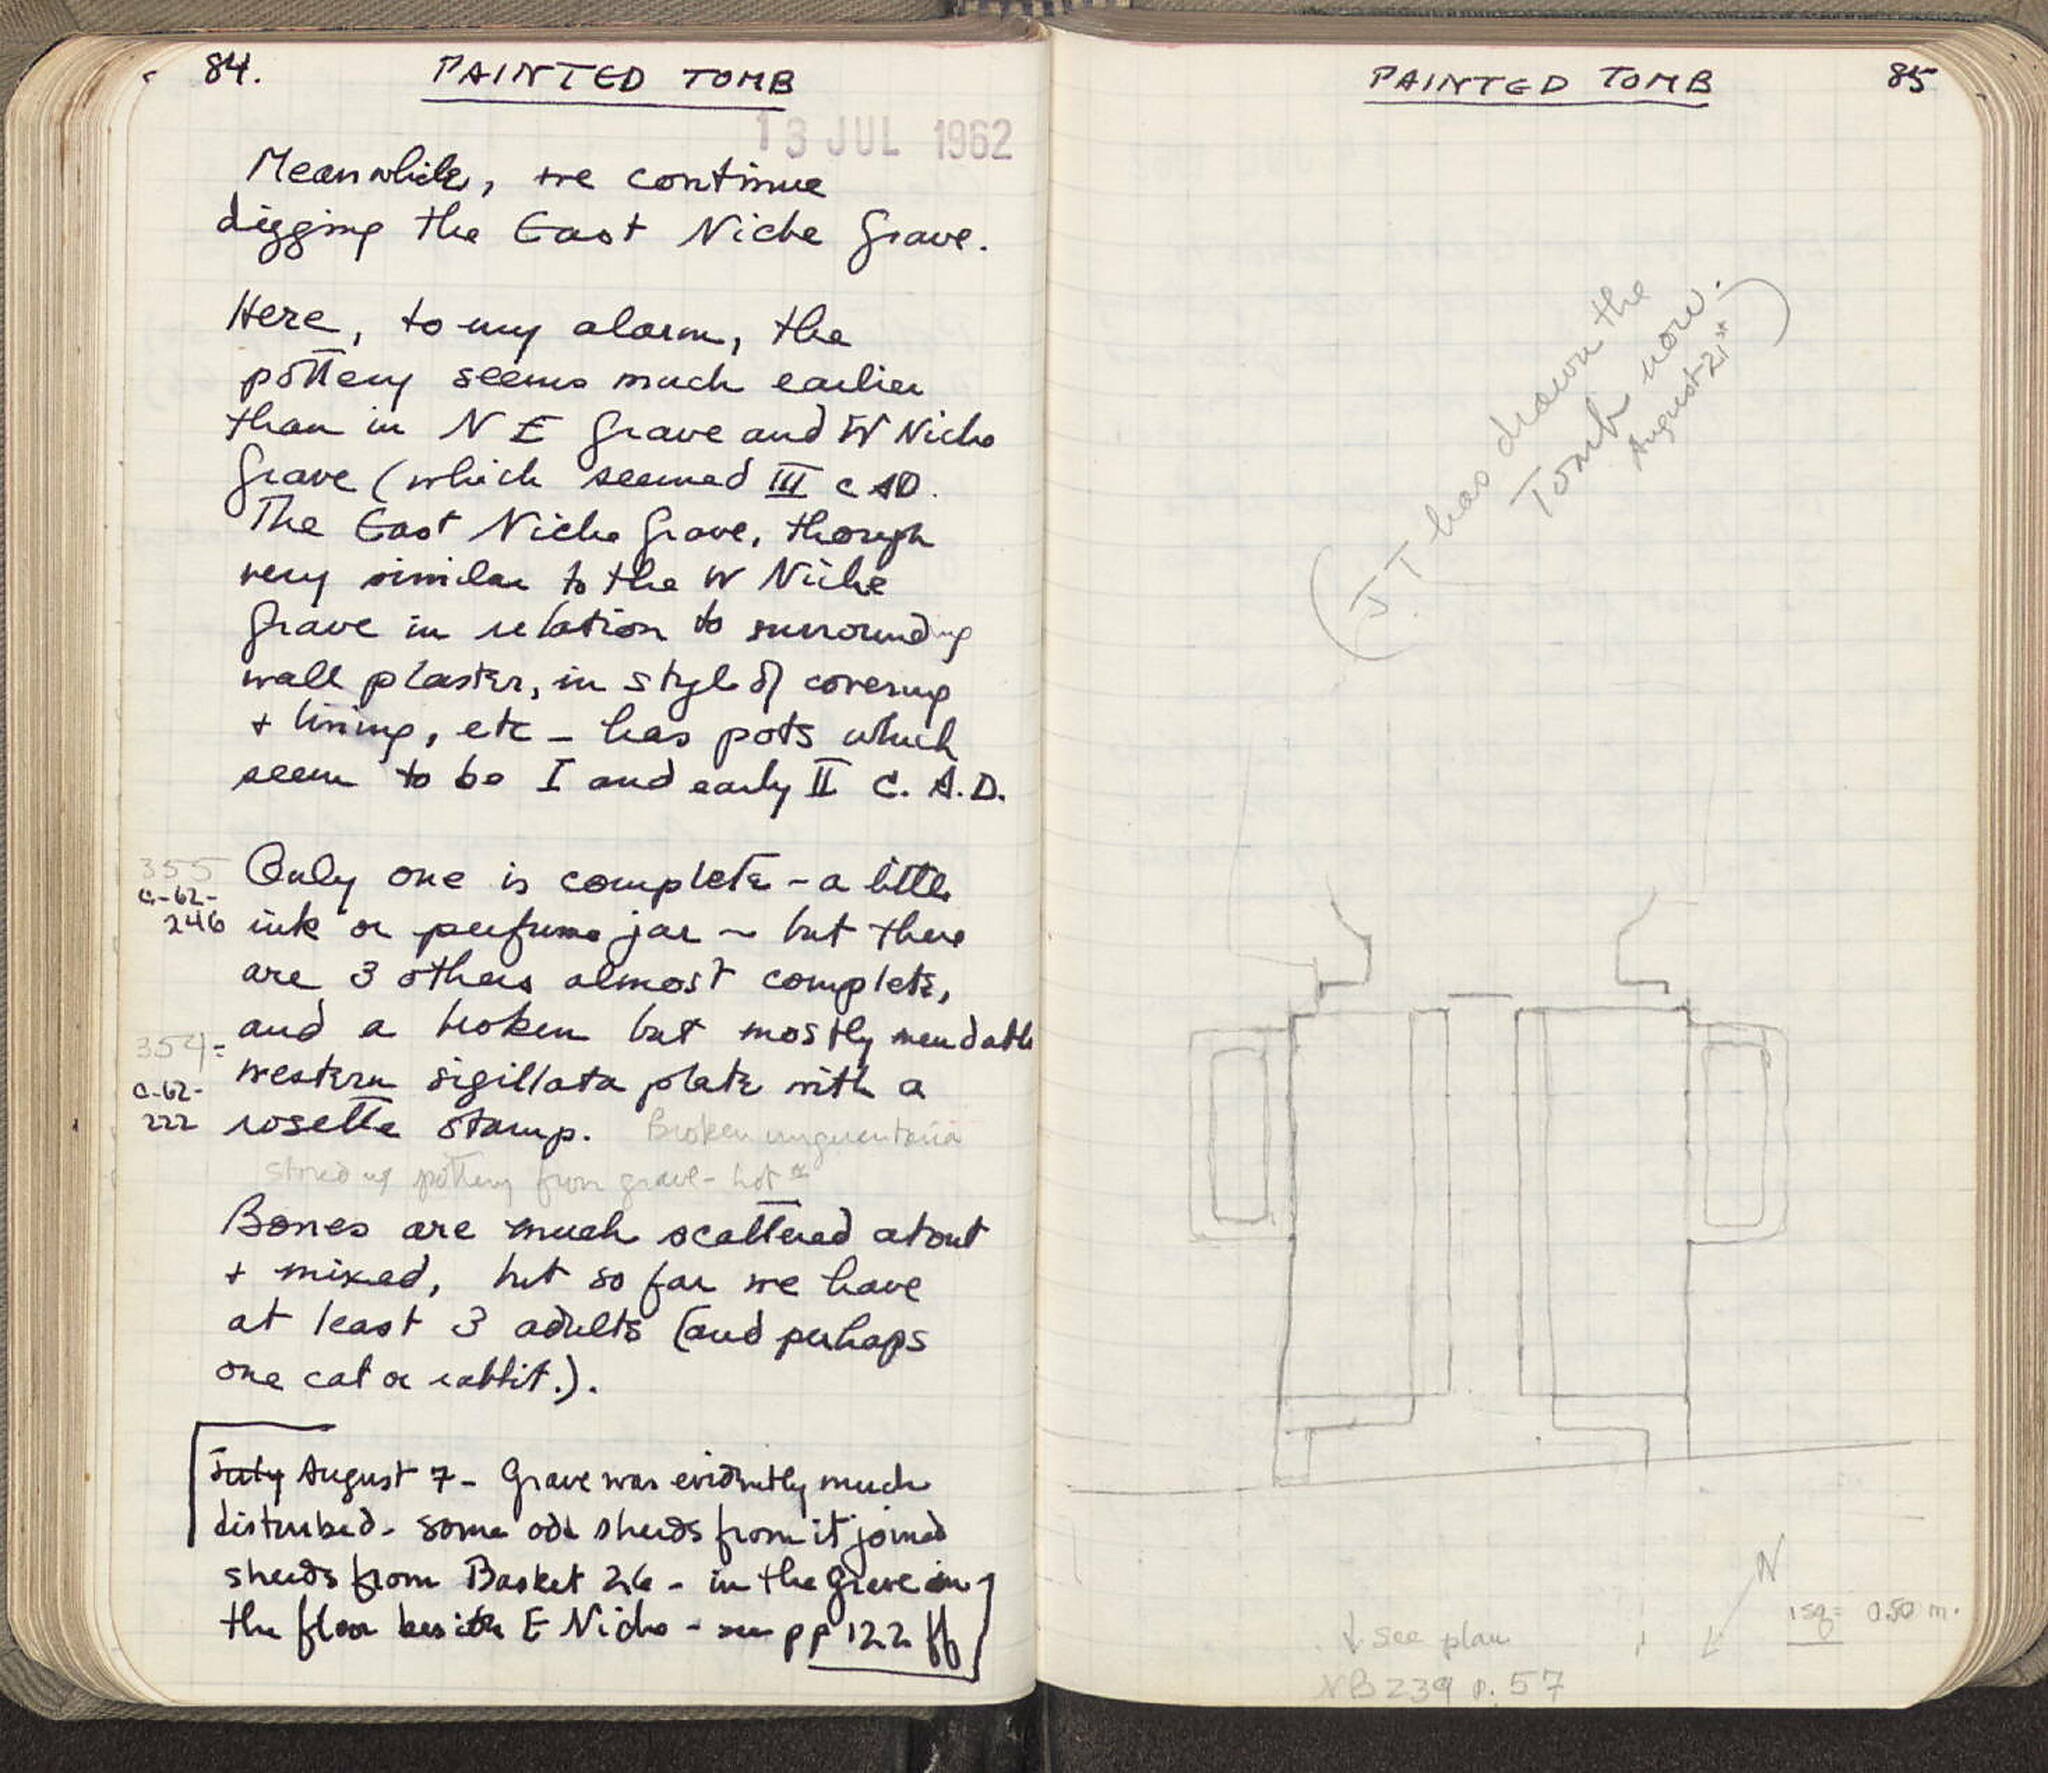 84.
PAINTED TOMB
13 JUL 1962
Meanwhile, we continue
digging the East Niche Grave.
Here, to my alarm, the
pottery seems much earlier
than in N E Grave and W Niche
Grave (which seemed III c AD.
The East Niche Grave, though
very similar to the W Niche
Grave in relation to surrounding
wall plaster, in style of covering
+ lining, etc - has pots which
seem to be I and early II C. A.D.
355
C-62-
246
Only one is complete - a little
ink or perfume jar - but there
are 3 others almost complete,
and a broken but mostly mendable
354=
C-62-
222
western sigillata plate with a
rosette stamp. Broken unguentaria
stored w/ pottery from grave - lot
Bones are much scattered about
+ mixed, but so far we have
at least 3 adults (and perhaps
one cat or rabbit.).
July August 7 - Grave was evidently much
disturbed - some odd sherds from it joined
sherds from Basket 26 - in the grave in
the floor beside E Niche - see pp 122 ff
PAINTED TOMB
85
(J T has drawn the
Tomb now.
August 21st)
N
1 sq = 0.50 m.
↓ see plan
NB 239 p. 57